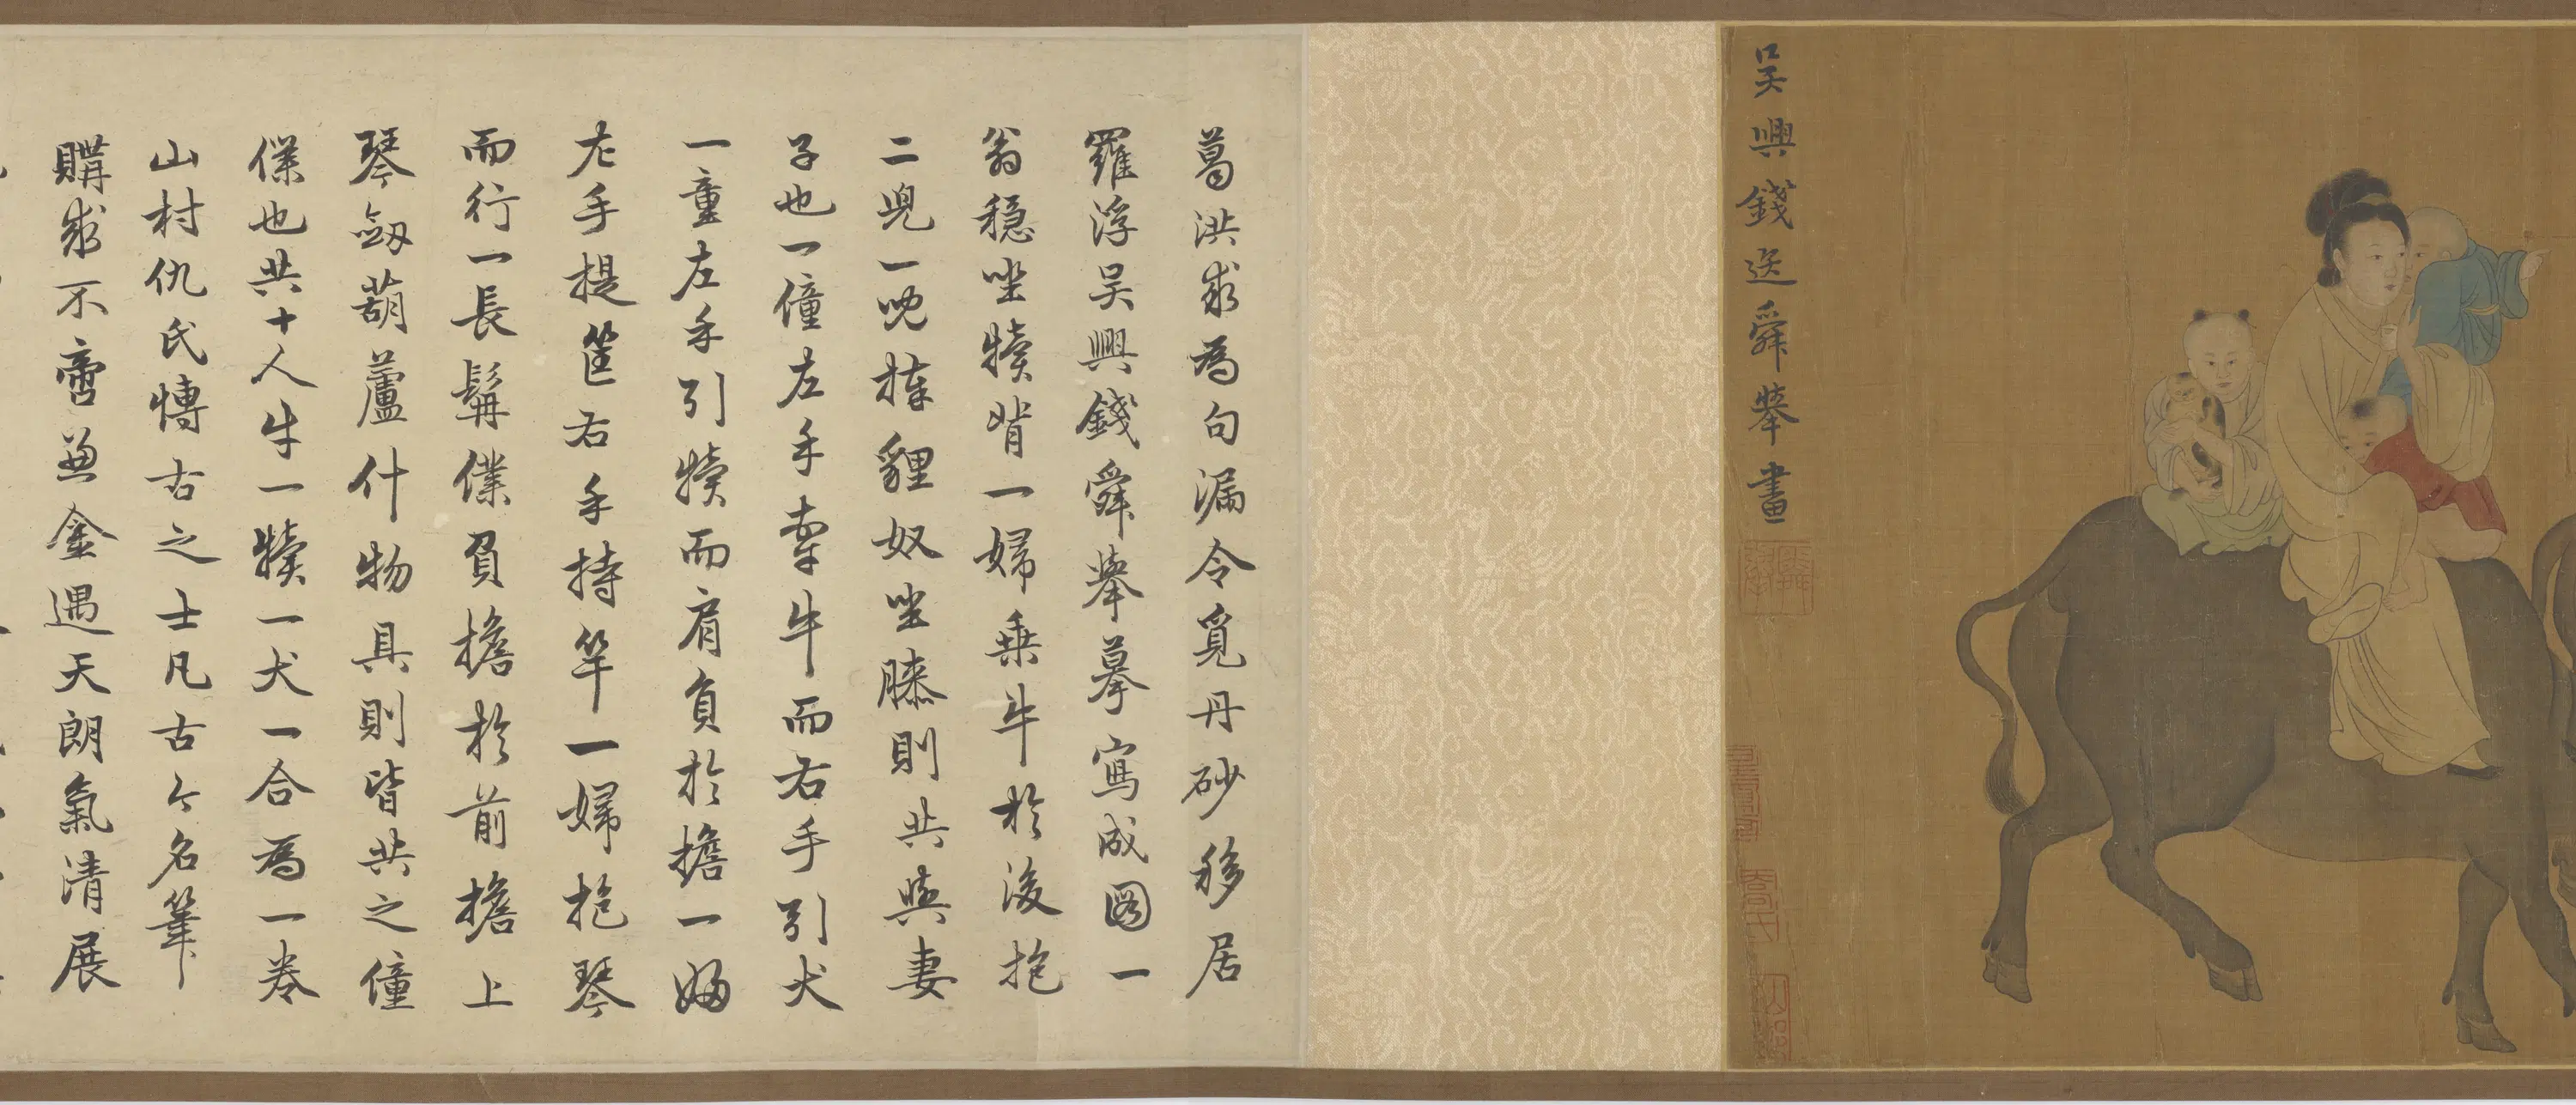 吳興錢選舜舉畫
葛洪求為句漏令覓丹砂移居
羅浮吳興錢舜舉摹寫成圖一
翁穩坐犢背一婦乘牛於後抱
二兒一晚捧貍奴坐膝則共與妻
子也一僮左手牽牛而右手引犬
一童左手引犢而肩負於擔一婦
左手提筐右手持竿一婦抱琴
而行一長髯僕負擔於前擔上
琴劒葫蘆什物具則皆共之僮
僕也共十人牛一犢一犬一合為一卷
山村仇氏愽古之士凡古今名筆
購求不啻兼金遇天朗氣清展